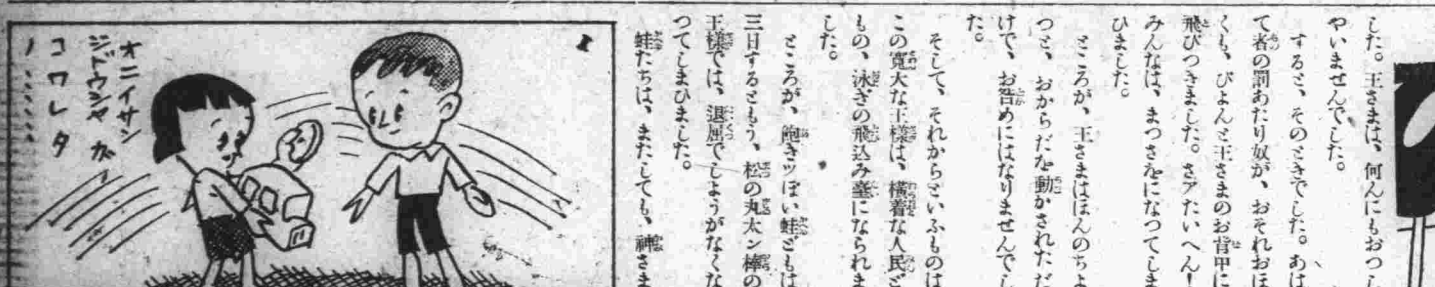 した。王さまは、何んにもおつし
やいませんでした。
すると、そのときでした。あは
て者の罰あたり奴が、おそれおほ
くも、ぴよんと王さまのお背甲に
飛びつきました。さアたいへん！
みんなは、まつさをになつてしま
ひました。
ところが、王さまはほんのちよ
つと、おからだを動かされただ
けで、お咎めにはなりませんでし
た。
そして、それからといふものは
この寛大な王様は、横着な人民ど
もの、泳ぎの飛込み臺になられま
した。
ところが、飽きツぽい蛙どもは
三日するともう、松の丸太ン棒の
王様では、退屈でしようがなくな
つてしまひました。
蛙たちは、またしても、神さま
1
オニイサン
ジドウシヤ ガ
コワレタ
ノ……